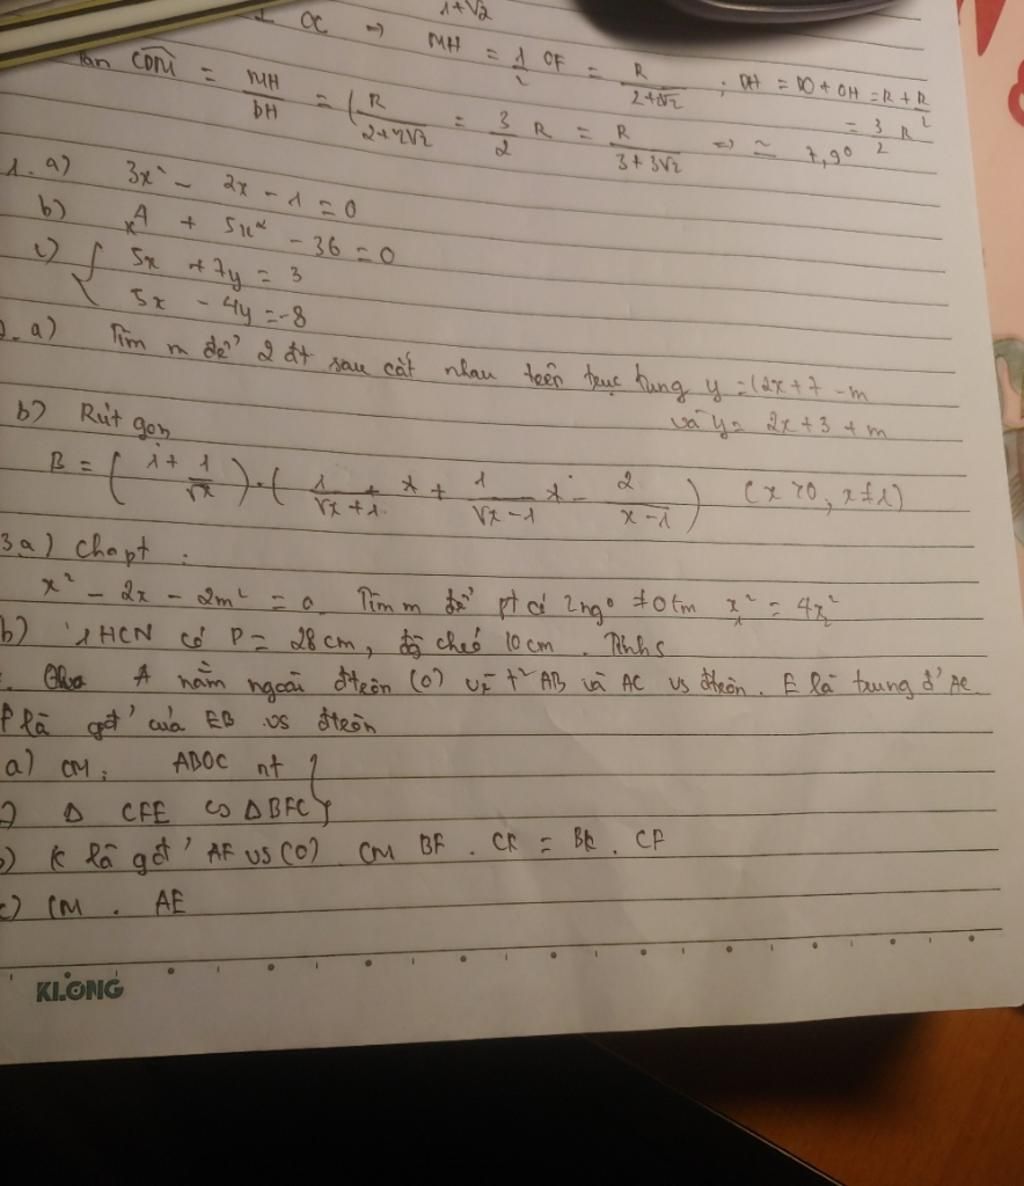 1+√2
OC → MH = 1/2 OF = R/(2+2√2) ; DH = DO + OH = R + R/2
tan CDM = MH/DH = (R/(2+2√2) = 3/2 R = R/(3+3√2) => ≃ 7,9° = 3/2 R
1. a) 3x² - 2x - 1 = 0
b) x⁴ + 5x² - 36 = 0
c) { 5x + 7y = 3
5x - 4y = -8
2. a) Tìm m để 2 đt sau cắt nhau trên trục tung y = (2x + 7 - m
và y = 2x + 3 + m
b) Rút gọn
B = (1 + 1/√x) . (1/(√x+1) + 1/(√x-1) - 2/(x-1)) (x > 0, x ≠ 1)
3a) Cho pt :
x² - 2x - 2m² = 0. Tìm m để pt có 2 ng° ≠ 0 tm x₁² = 4x₂²
b) 1 HCN có P = 28 cm, độ chéo 10 cm . Tính S
Qua A nằm ngoài đtròn (O) vẽ t² AB và AC vs đtròn. E là trung đ' AC
F là gđ' của EB vs đtròn
a) CM : ABOC nt }
Δ CFE ∽ Δ BFC
b) K là gđ' AF vs (O) CM BF . CK = BK . CF
c) CM . AE
KLONG